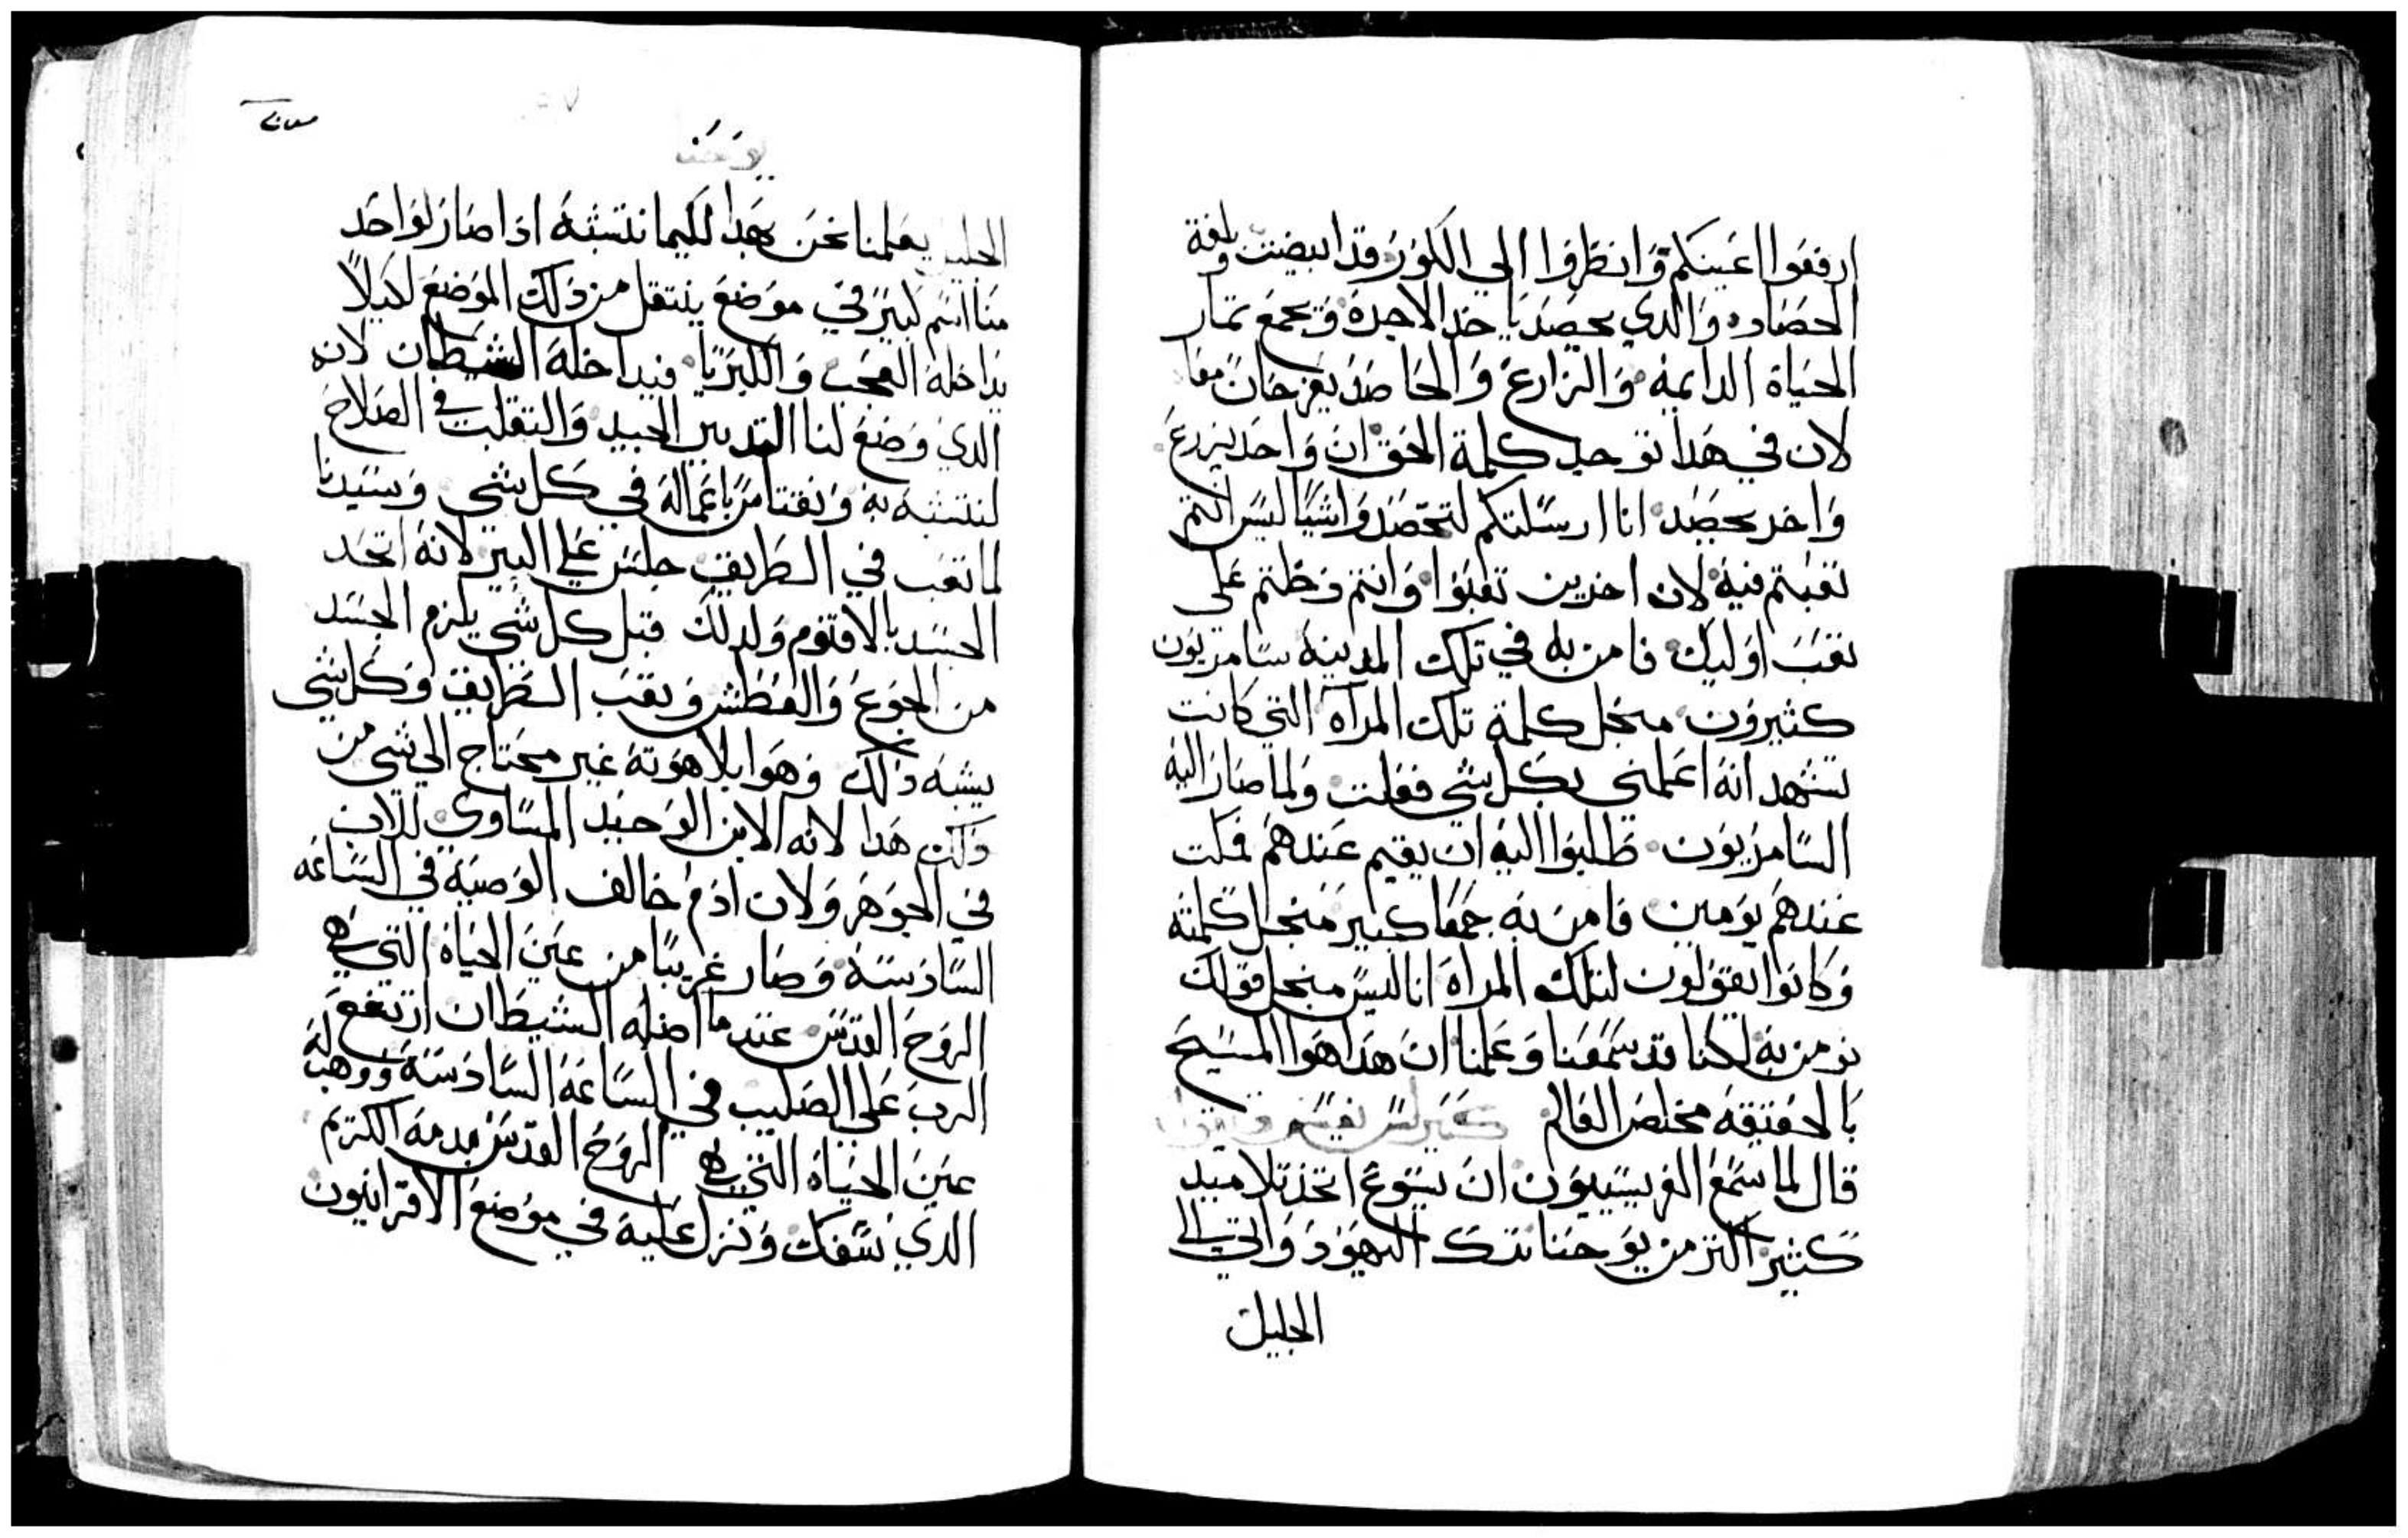 ارفعوا اعينكم وانظروا الي الكور قد ابيضت وبلغة
الحصاد والدي يحصد ياخد الاجرة ويجمع تمار
الحياة الدايمة والزارع والحاصد يفرحان معا
لان في هدا توجد كلمة الحق ان واحد يزرع
واخر يحصد انا ارسلتكم لتحصدوا شيا ليس انتم
تعبتم فيه لان اخرين تعبوا وانتم دخلتم على
تعب اوليك فامن به في تلك المدينة سامريون
كثيرون منجل كلمة تلك المراه التي كانت
تشهد انه اعلمني بكل شي فعلت ولما صار اليه
السامريون طلبوا اليه ان يقيم عندهم فمكت
عندهم يومين فامن به جمعا كبير منجل كلمته
وكانوا يقولون لتلك المراة انا ليس منجل قولك
نومن به لكنا قد سمعنا وعلمنا ان هدا هوا المسيح
بالحقيقه مخلص العالم كيرلس يفسر ويقول
قال لما سمع الفريسيون ان يسوع اتخد تلاميد
كثير اكتر من يوحنا ترك اليهود واتي الي
الجليل
يوحنا
الجليل يعلمنا نحن بهدا لكيما نتشبه ادا صار لواحد
منا اسم كبير في موضع ينتقل من دلك الموضع لكيلا
يداخله العجب والكبريا فيداخله الشيطان لانه
الدي وضع لنا القديس الجيد والتقلب في الصلاح
لنتشبه به ونقتا من باعماله في كل شي وسيدنا
لما تعب في الطريق جلس علي البير لانه اتحد
الجسد بالاقنوم ولدلك قبل كل شي يلزم الجسد
من الجوع والعطش وتعب الطريق وكل شي
يشبه دلك وهوا بلاهوته غير محتاج الي شي من
دلك هدا لانه الابن الوحيد المساوي للاب
في الجوهر ولان ادم خالف الوصية في الساعه
السادسة وصار غريبا من عين الحياة التي هي
الروح القدس عندما اضله الشيطان ارتفع
الرب علي الصليب في الساعة السادسة ووهب له
عين الحياة التي هي الروح القدس بدمه الكريم
الدي سفك ونزل عليه في موضع الاقرانيون